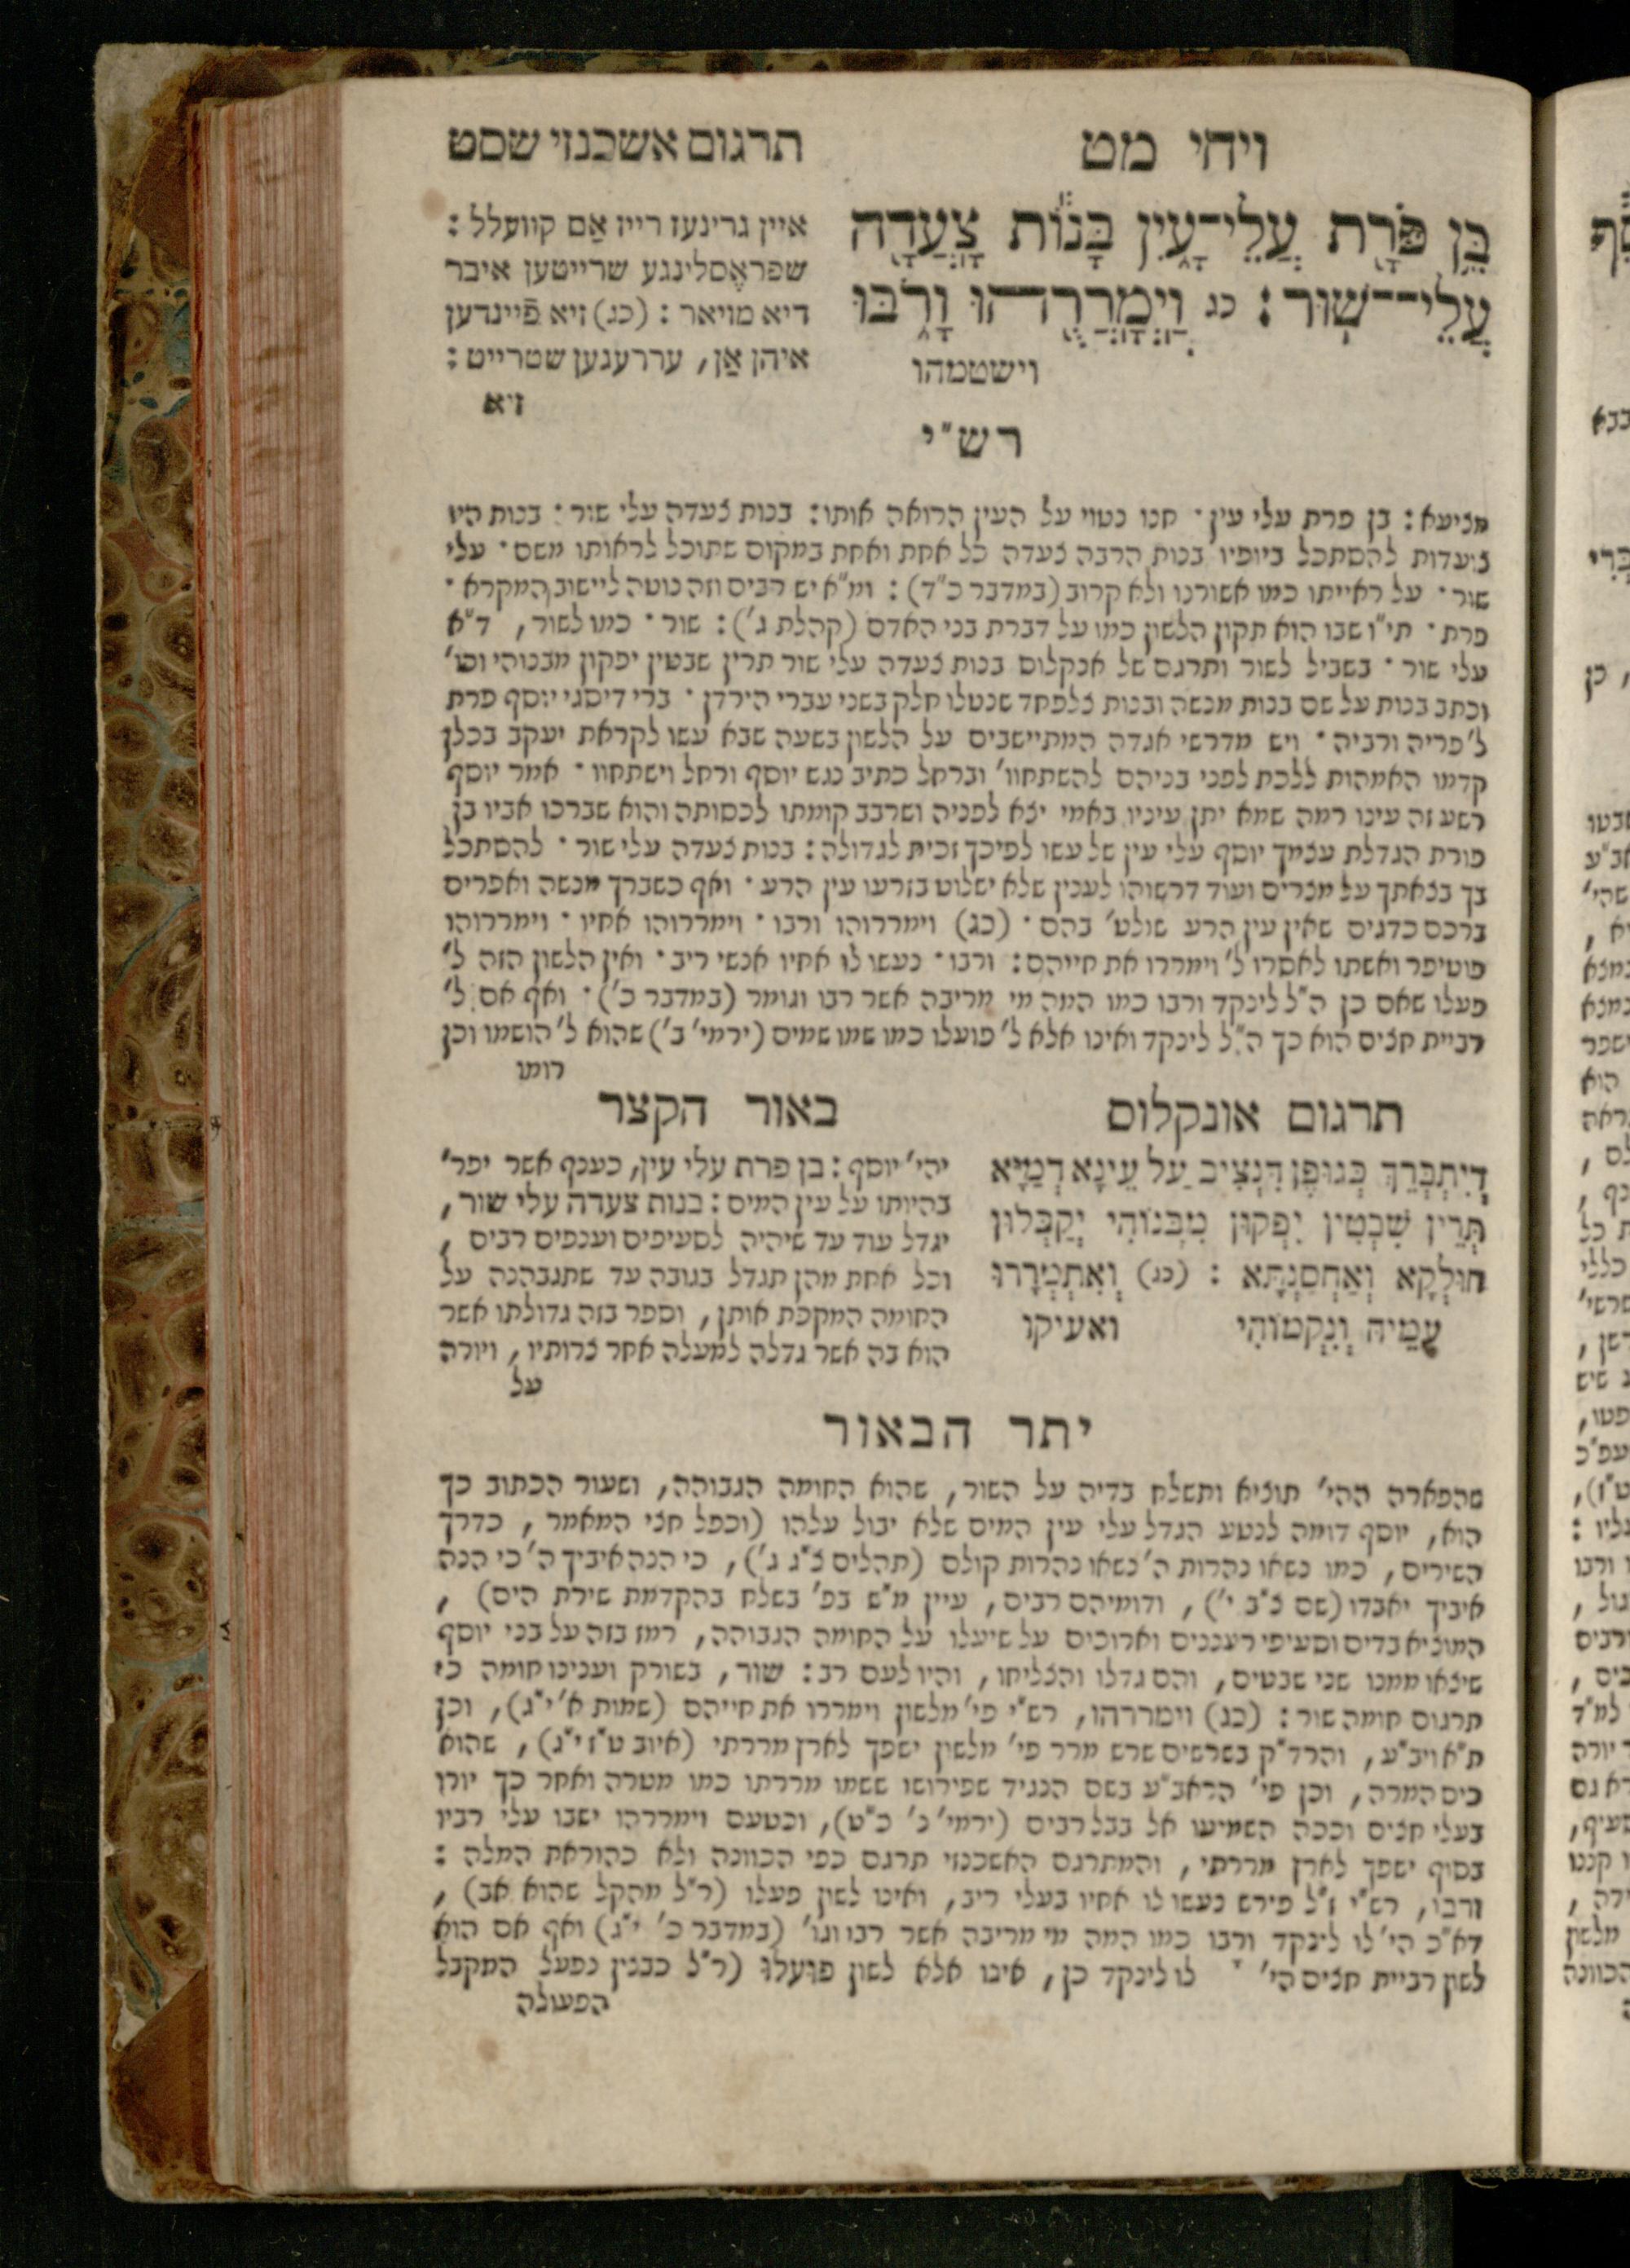 ויחי מט
תרגום אשכנזי שסט
בֵּ֤ן פֹּרָת֙ עֲלֵי־עָ֔יִן בָּנ֕וֹת צָעֲדָ֖ה
עֲלֵי־שֽׁוּר׃ כג וַֽיְמָרֲרֻ֖הוּ וָרֹ֑בּוּ
וישטמהו
איין גרינעז רייז אַם קוועלל :
שפראֶסלינגע שרייטען איבר
דיא מויאר : (כג) זיא פֿיינדען
איהן אַן, עררעגען שטרייט :
זיא
רש"י
מציעא: בן פרת עלי עין· חנו נטוי על העין הרואה אותו: בנות צעדה עלי שור· בנות היו
צועדות להסתכל ביופיו בנות הרבה צעדה כל אחת ואחת במקום שתוכל לראותו משם· עלי
שור· על ראייתו כמו אשורנו ולא קרוב (במדבר כ"ד): ומ"א יש רבים וזה נוטה ליישוב המקרא·
פרת· תי"ו שבו הוא תקון הלשון כמו על דברת בני האדם (קהלת ג'): שור· כמו לשור, ד"א
עלי שור· בשביל לשור ותרגם של אנקלוס בנות צעדה עלי שור תרין שבטין יפקון מבנוהי וכו'
וכתב בנות על שם בנות מנשה ובנות צלפחד שנטלו חלק בשני עברי הירדן· ברי דיסגי יוסף פרת
ל' פריה ורביה· ויש מדרשי אגדה המתיישבים על הלשון בשעה שבא עשו לקראת יעקב בכלן
קדמו האמהות ללכת לפני בניהם להשתחוו' וברחל כתיב נגש יוסף ורחל וישתחוו· אמר יוסף
רשע זה עינו רמה שמא יתן עיניו באמי יצא לפניה ושרבב קומתו לכסותה והוא שברכו אביו בן
פורת הגדלת עצמך יוסף עלי עין של עשו לפיכך זכית לגדולה: בנות צעדה עלי שור· להסתכל
בך בצאתך על מצרים ועוד דרשוהו לענין שלא ישלוט בזרעו עין הרע· ואף כשברך מנשה ואפרים
ברכם כדגים שאין עין הרע שולט' בהם· (כג) וימררוהו ורבו· וימררוהו אחיו· וימררוהו
פוטיפר ואשתו לאסרו ל' וימררו את חייהם: ורבו· נעשו לו אחיו אנשי ריב· ואין הלשון הזה ל'
פעלו שאם כן ה"ל לינקד ורבו כמו המה מי מריבה אשר רבו וגומר (במדבר כ')· ואף אם ל'
רביית חצים הוא כך ה"ל לינקד ואינו אלא ל' פועלו כמו שמו שמים (ירמי' ב') שהוא ל' הושמו וכן
רומו
תרגום אונקלוס
דְיִתְבְּרֵךְ כְּגוּפֶן דִּנְצִיב עַל עֵינָא דְמַיָּא
תְּרֵין שִׁבְטִין יִפְקוּן מִבְּנוֹהִי יְקַבְּלוּן
חוּלָקָא וְאַחְסַנְתָּא : (כג) וְאִתְמְרָרוּ
עִמֵּיהּ וְנִקְמוֹהִי ואעיקו
באור הקצר
יהי' יוסף: בן פרת עלי עין, כענף אשר יפר'
בהיותו על עין המים: בנות צעדה עלי שור,
יגדל עוד עד שיהיה לסעיפים וענפים רבים,
וכל אחת מהן תגדל בגובה עד שתגבהנה על
החומה המקפת אותן, וספר בזה גדולתו אשר
הוא בה אשר גדלה למעלה אחר צרותיו, ויורה
על
יתר הבאור
שהפארה ההי' תוציא ותשלח בדיה על השור, שהוא החומה הגבוהה, ושעור הכתוב כך
הוא, יוסף דומה לנטע הגדל עלי עין המים שלא יבול עלהו (וכפל חצי המאמר, כדרך
השירים, כמו נשאו נהרות ה' נשאו נהרות קולם (תהלים צ"ג ג'), כי הנה איביך ה' כי הנה
איביך יאבדו (שם צ"ב י'), ודומיהם רבים, עיין מ"ש בפ' בשלח בהקדמת שירת הים),
המוציא בדים וסעיפי רעננים וארוכים על שיעלו על החומה הגבוהה, רמז בזה על בני יוסף
שיצאו ממנו שני שבטים, והם גדלו והצליחו, והיו לעם רב: שור, בשורק ועניינו חומה כי
תרגום חומה שור: (כג) וימררהו, רש"י פי' מלשון וימררו את חייהם (שמות א' י"ג), וכן
ת"א ויב"ע, והרד"ק בשרשים שרש מרר פי' מלשון ישפך לארץ מררתי (איוב ט"ז י"ג), שהוא
כיס המרה, וכן פי' הראב"ע בשם הנגיד שפירושו ששמו מררתו כמו מטרה ואחר כך יורו
בעלי חצים וככה השמיעו אל בבל רבים (ירמי' נ' כ"ט), וכטעם וימררהו ישבו עלי רביו
בסוף ישפך לארץ מררתי, והמתרגם האשכנזי תרגם כפי הכוונה ולא כהוראת המלה :
ורבו, רש"י ז"ל פירש נעשו לו אחיו בעלי ריב, ואינו לשון פעלו (ר"ל מהקל שהוא אב),
דא"כ הי' לו לינקד ורבו כמו המה מי מריבה אשר רבו וגו' (במדבר כ' י"ג) ואף אם הוא
לשון רביית חצים הי' לו לינקד כן, אינו אלא לשון פועלו (ר"ל כבנין נפעל המקבל
הפעולה